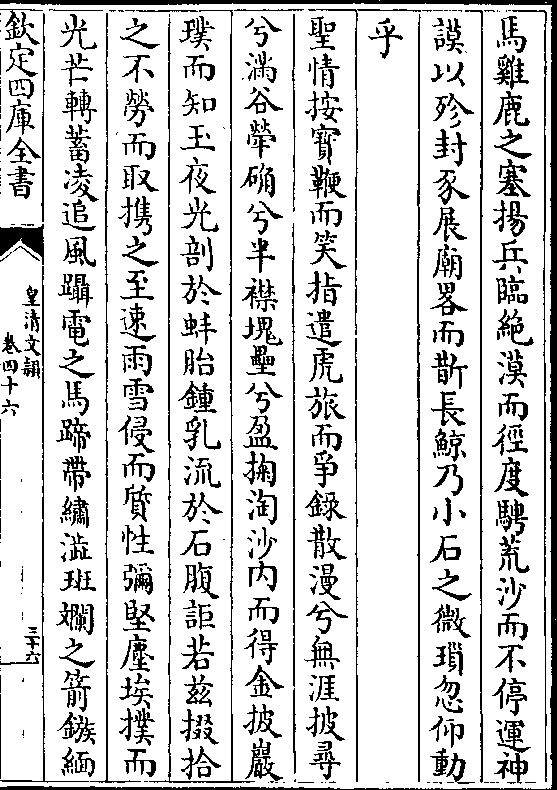 馬雞鹿之塞揚兵臨絶漠而徑度騁荒沙而不停運神
謨以殄封豕展廟畧而斮長鯨乃小石之微瑣忽仰動
乎
聖情按寳鞭而笑指遣虎旅而爭錄散漫兮無涯披尋
兮滿谷犖确兮半襟塊壘兮盈掬淘沙内而得金披巖
璞而知玉夜光剖於蚌胎鍾乳流於石腹詎若兹掇拾
之不勞而取攜之至速雨雪侵而質性彌堅塵埃撲而
光芒轉蓄凌追風躡電之馬蹄帶繡澁斑斕之箭鏃緬
欽定四庫全書
皇清文穎
卷四十六
三十六